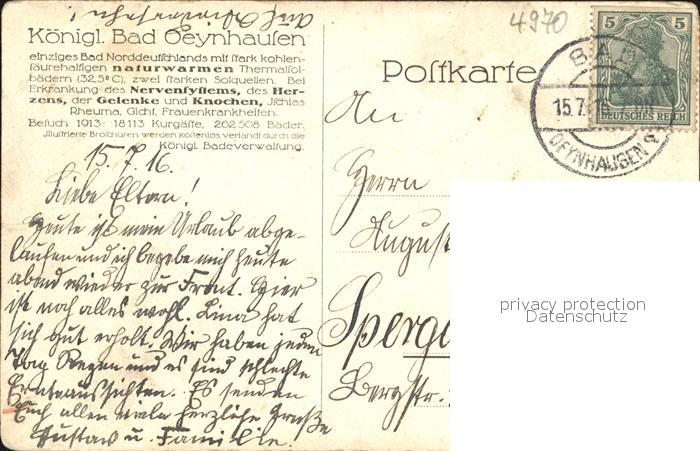 Auf Wiedersehn!
Königl. Bad Oeynhausen
einziges Bad Norddeutschlands mit stark kohlen-
säurehaltigen naturwarmen Thermalsol-
bädern (32,5° C), zwei starken Solquellen. Bei
Erkrankung des Nervensystems, des Her-
zens, der Gelenke und Knochen, Ischias
Rheuma, Gicht, Frauenkrankheiten.
Besuch 1913: 18113 Kurgäste, 262508 Bäder.
Illustrierte Broschüren werden kostenlos versandt durch die
Königl. Badeverwaltung.
15.7.16.
Liebe Eltern!
Heute ist mein Urlaub abge-
laufen und ich begebe mich heute
abend wieder zur Front. Hier
ist noch alles wohl. Lina hat
sich gut erholt. Wir haben jeden
Tag Regen und es sind schlechte
Ernteaussichten. Es senden
Euch allen viele herzliche Grüße
Gustav u. Familie.
4970
Postkarte
5 5
DEUTSCHES REICH
BAD
15.7.16
OEYNHAUSEN
An
Herrn
August
Sperge
Bergstr.
privacy protection
Datenschutz